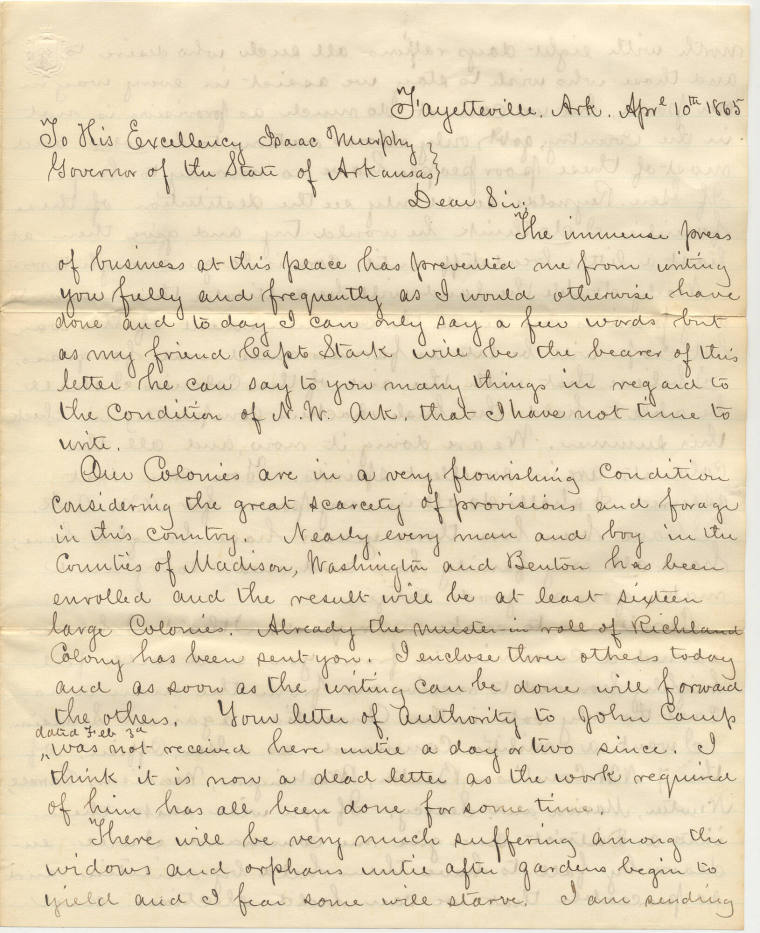 Fayetteville, Ark. Aprl 10th 1865
To His Excellency Isaac Murphy }
Governor of the State of Arkansas }
Dear Sir,
The immense press
of business at this place has prevented me from writing
you fully and frequently as I would otherwise have
done and to day I can only say a few words but
as my friend Capt Stark will be the bearer of this
letter he can say to you many things in regard to
the Condition of N.W. Ark. that I have not time to
write.
Our Colonies are in a very flourishing Condition
Considering the great scarcety of provisions and forage
in this country. Nearly every man and boy in the
Counties of Madison, Washington and Benton has been
enrolled and the result will be at least sixteen
large Colonies. Already the muster-in role of Richland
Colony has been sent you. I enclose three others today
and as soon as the writing can be done will forward
the others. Your letter of authority to John Camp
dated Feb 3d
was not received here untie a day or two since. I
think it is now a dead letter as the work required
of him has all been done for some time.
There will be very much suffering among the
widows and orphans untie after gardens begin to
yield and I fear some will starve. I am sending